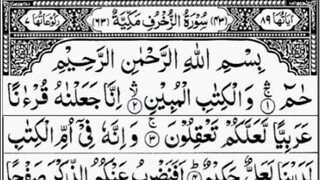 اٰیَاتُهَا ٨٩ (٤٣) سُوْرَةُ الزُّخْرُفِ مَكِّيَّةٌ (٦٣) رُكُوْعَاتُهَا ٧
بِسْمِ اللّٰهِ الرَّحْمٰنِ الرَّحِيْمِ
حٰمٓ ۚ ١ وَ الْكِتٰبِ الْمُبِيْنِ ۙ ٢ اِنَّا جَعَلْنٰهُ قُرْءٰنًا
عَرَبِيًّا لَّعَلَّكُمْ تَعْقِلُوْنَ ۚ ٣ وَ اِنَّهٗ فِيْۤ اُمِّ الْكِتٰبِ
لَدَيْنَا لَعَلِيٌّ حَكِيْمٌ ؕ ٤ اَفَنَضْرِبُ عَنْكُمُ الذِّكْرَ صَفْحًا